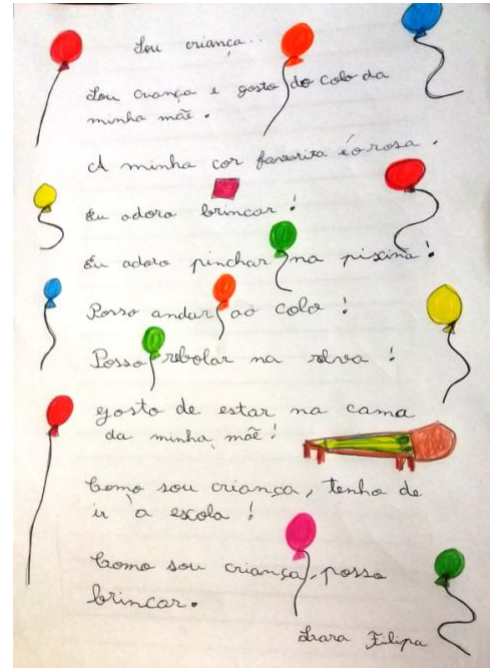 Sou criança...
Sou criança e gosto do colo da
minha mãe.
A minha cor favorita é o rosa.
Eu adoro brincar!
Eu adoro pinchar na piscina!
Posso andar ao colo!
Posso rebolar na relva!
gosto de estar na cama
da minha mãe!
Como sou criança, tenho de
ir à escola!
Como sou criança, posso
brincar.
Lara Filipa